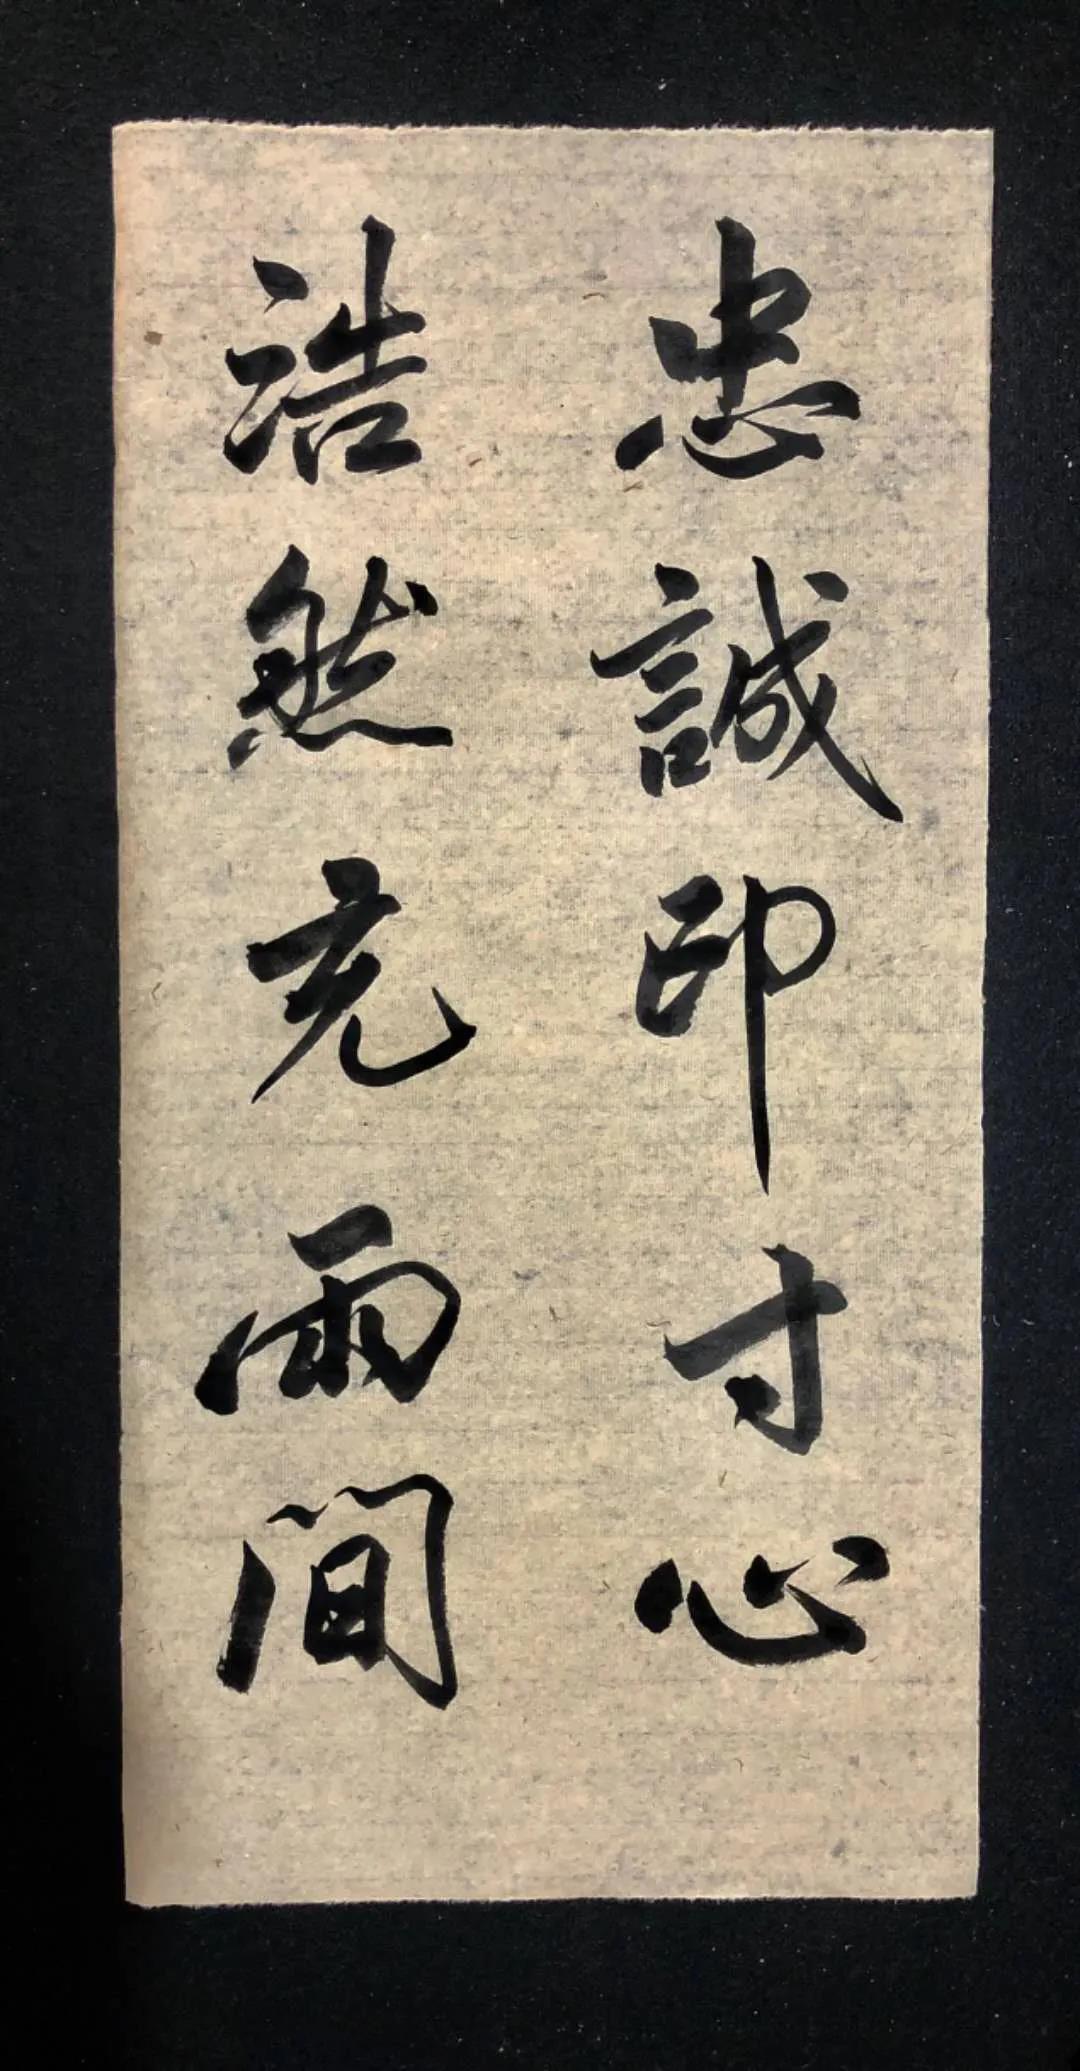 忠誠印寸心
浩然充兩間